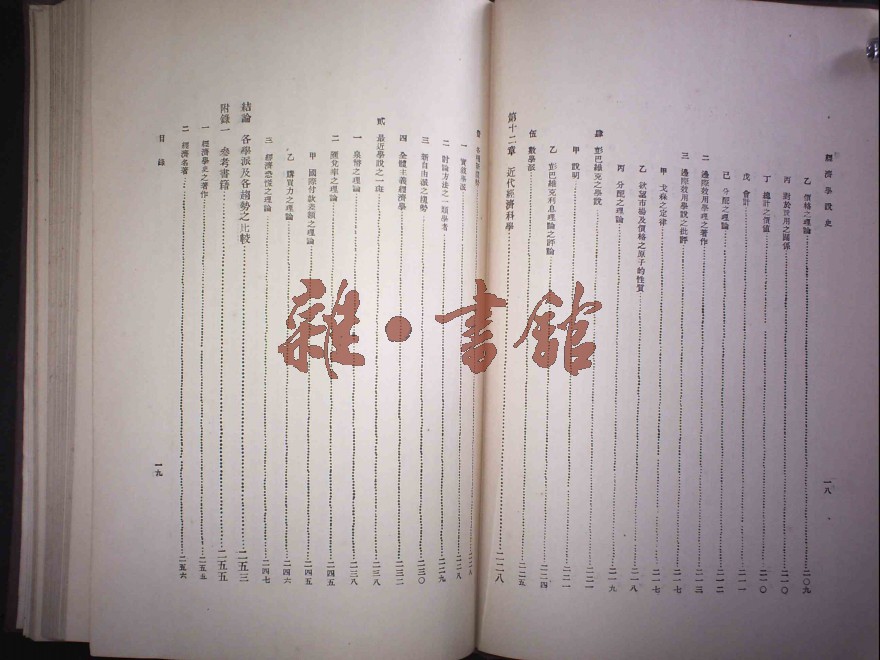 經濟學說史
一八
乙 價格之理論 二〇九
丙 對於費用之關係 二一〇
丁 總計之價值 二一〇
戊 會計 二一一
己 分配之理論 二一二
二 邊際效用學理之著作 二一三
三 邊際效用學說之批評 二一七
甲 戈森之定律 二一七
乙 欲望市場及價格之原子的性質 二一八
丙 分配之理論 二一九
肆 彭巴維克之學說 二二一
甲 說明 二二一
乙 彭巴維克利息理論之評論 二二四
伍 數學派 二二五
第十二章 近代經濟科學 二二八
二二八
一 實踐學派 二二八
二 討論方法之一類學者 二二九
三 新自由派之趨勢 二三〇
四 全體主義經濟學 二三二
貳 最近學說之一斑 二三八
一 泉幣之理論 二三八
二 匯兌率之理論 二四五
甲 國際付款差額之理論 二四五
乙 購買力之理論 二四六
三 經濟恐慌之理論 二四七
結論 各學派及各趨勢之比較 二五三
附錄一 參考書籍 二五五
一 經濟學史之著作 二五五
二 經濟名著 二五六
目錄
一九
雜·書館